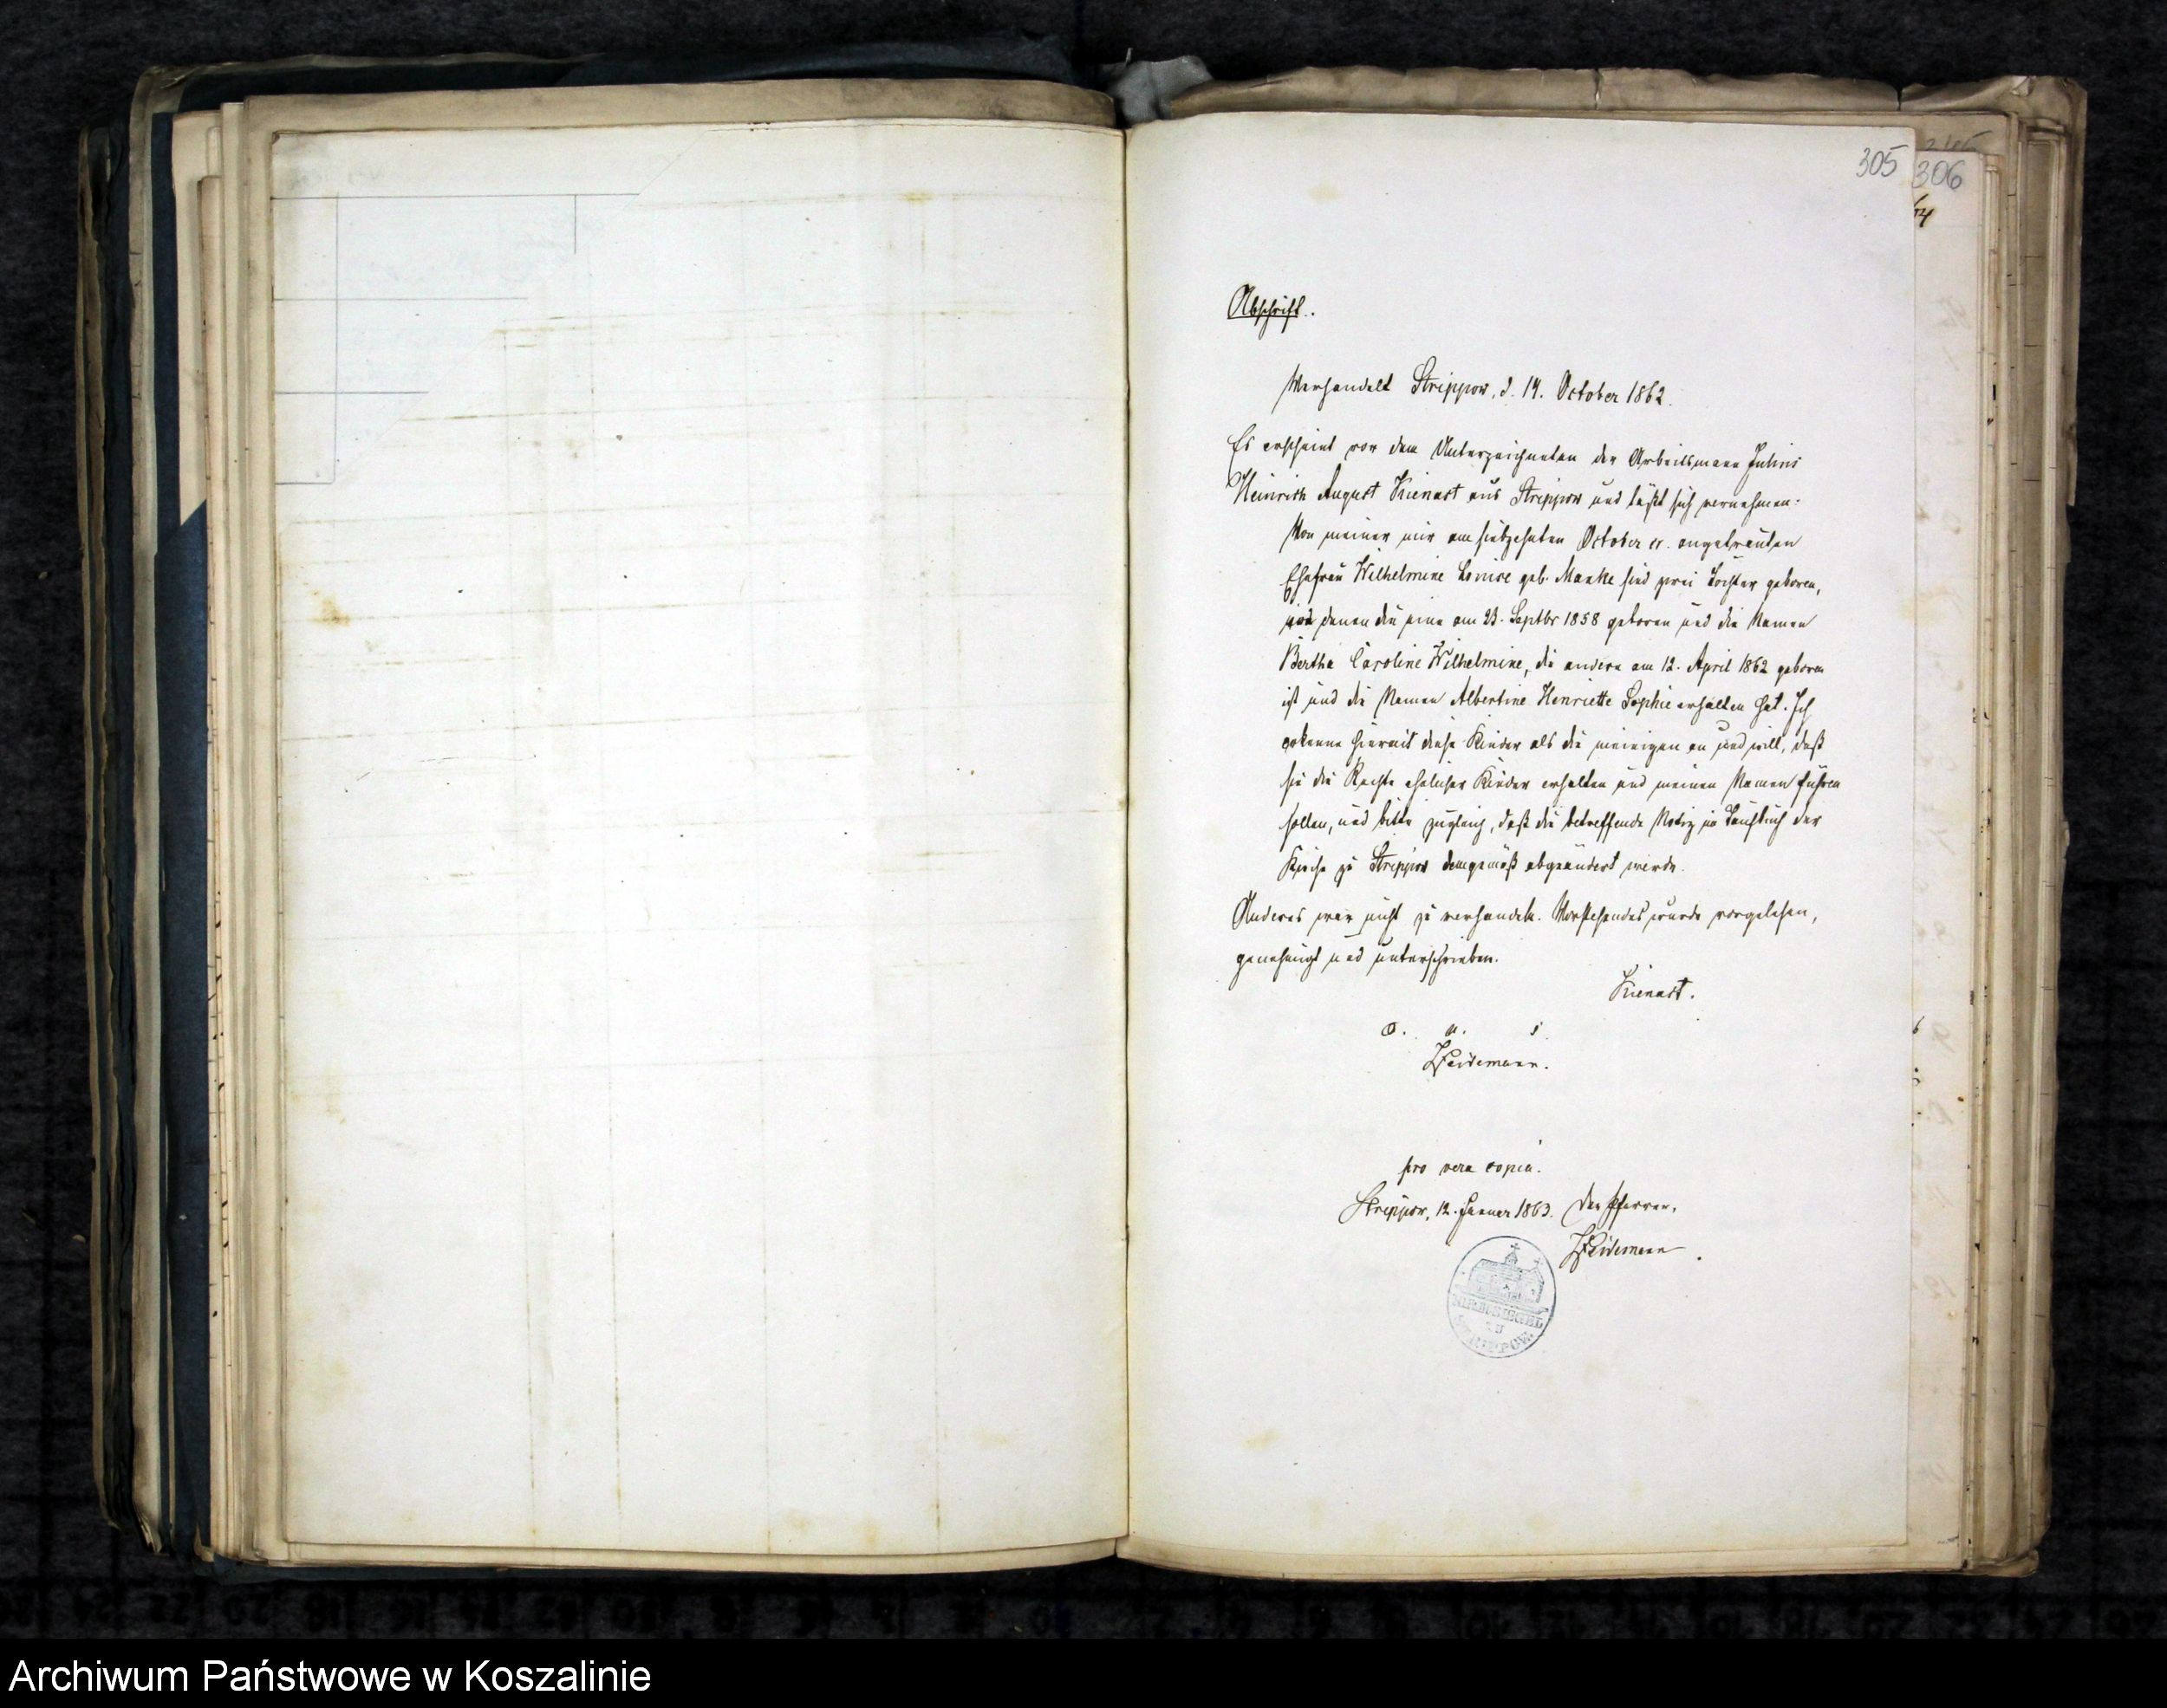 305
306
Abschrift.
Verhandelt Strippow, d. 14. October 1862.
Es erscheint vor dem Unterzeichneten der Arbeitsmann Julius
Heinrich August Kienast aus Strippow und läßt sich vernehmen:
Von meiner mir am siebzehnten October cr. angetrauten
Ehefrau Wilhelmine Louise geb. Manke sind zwei Töchter geboren,
von denen die eine am 23. Septbr 1858 geboren und die Namen
Bertha Caroline Wilhelmine, die andere am 12. April 1862 geboren
ist und die Namen Albertine Henriette Sophie erhalten hat. Ich
erkenne hiermit diese Kinder als die meinigen an und will, daß
sie die Rechte ehelicher Kinder erhalten und meinen Namen führen
sollen, und bitte zugleich, daß die betreffende Notiz im Taufbuch der
Kirche zu Strippow demgemäß abgeändert werde.
Anderes war nicht zu verhandeln. Vorstehendes wurde vorgelesen,
genehmigt und unterschrieben.
Kienast.
a. u. s.
Weidemann.
pro vera copia.
Strippow, 12. Januar 1863. Der Pfarrer.
Weidemann.
KIRCHENSIEGEL
ZU
STRIPPOW
Archiwum Państwowe w Koszalinie